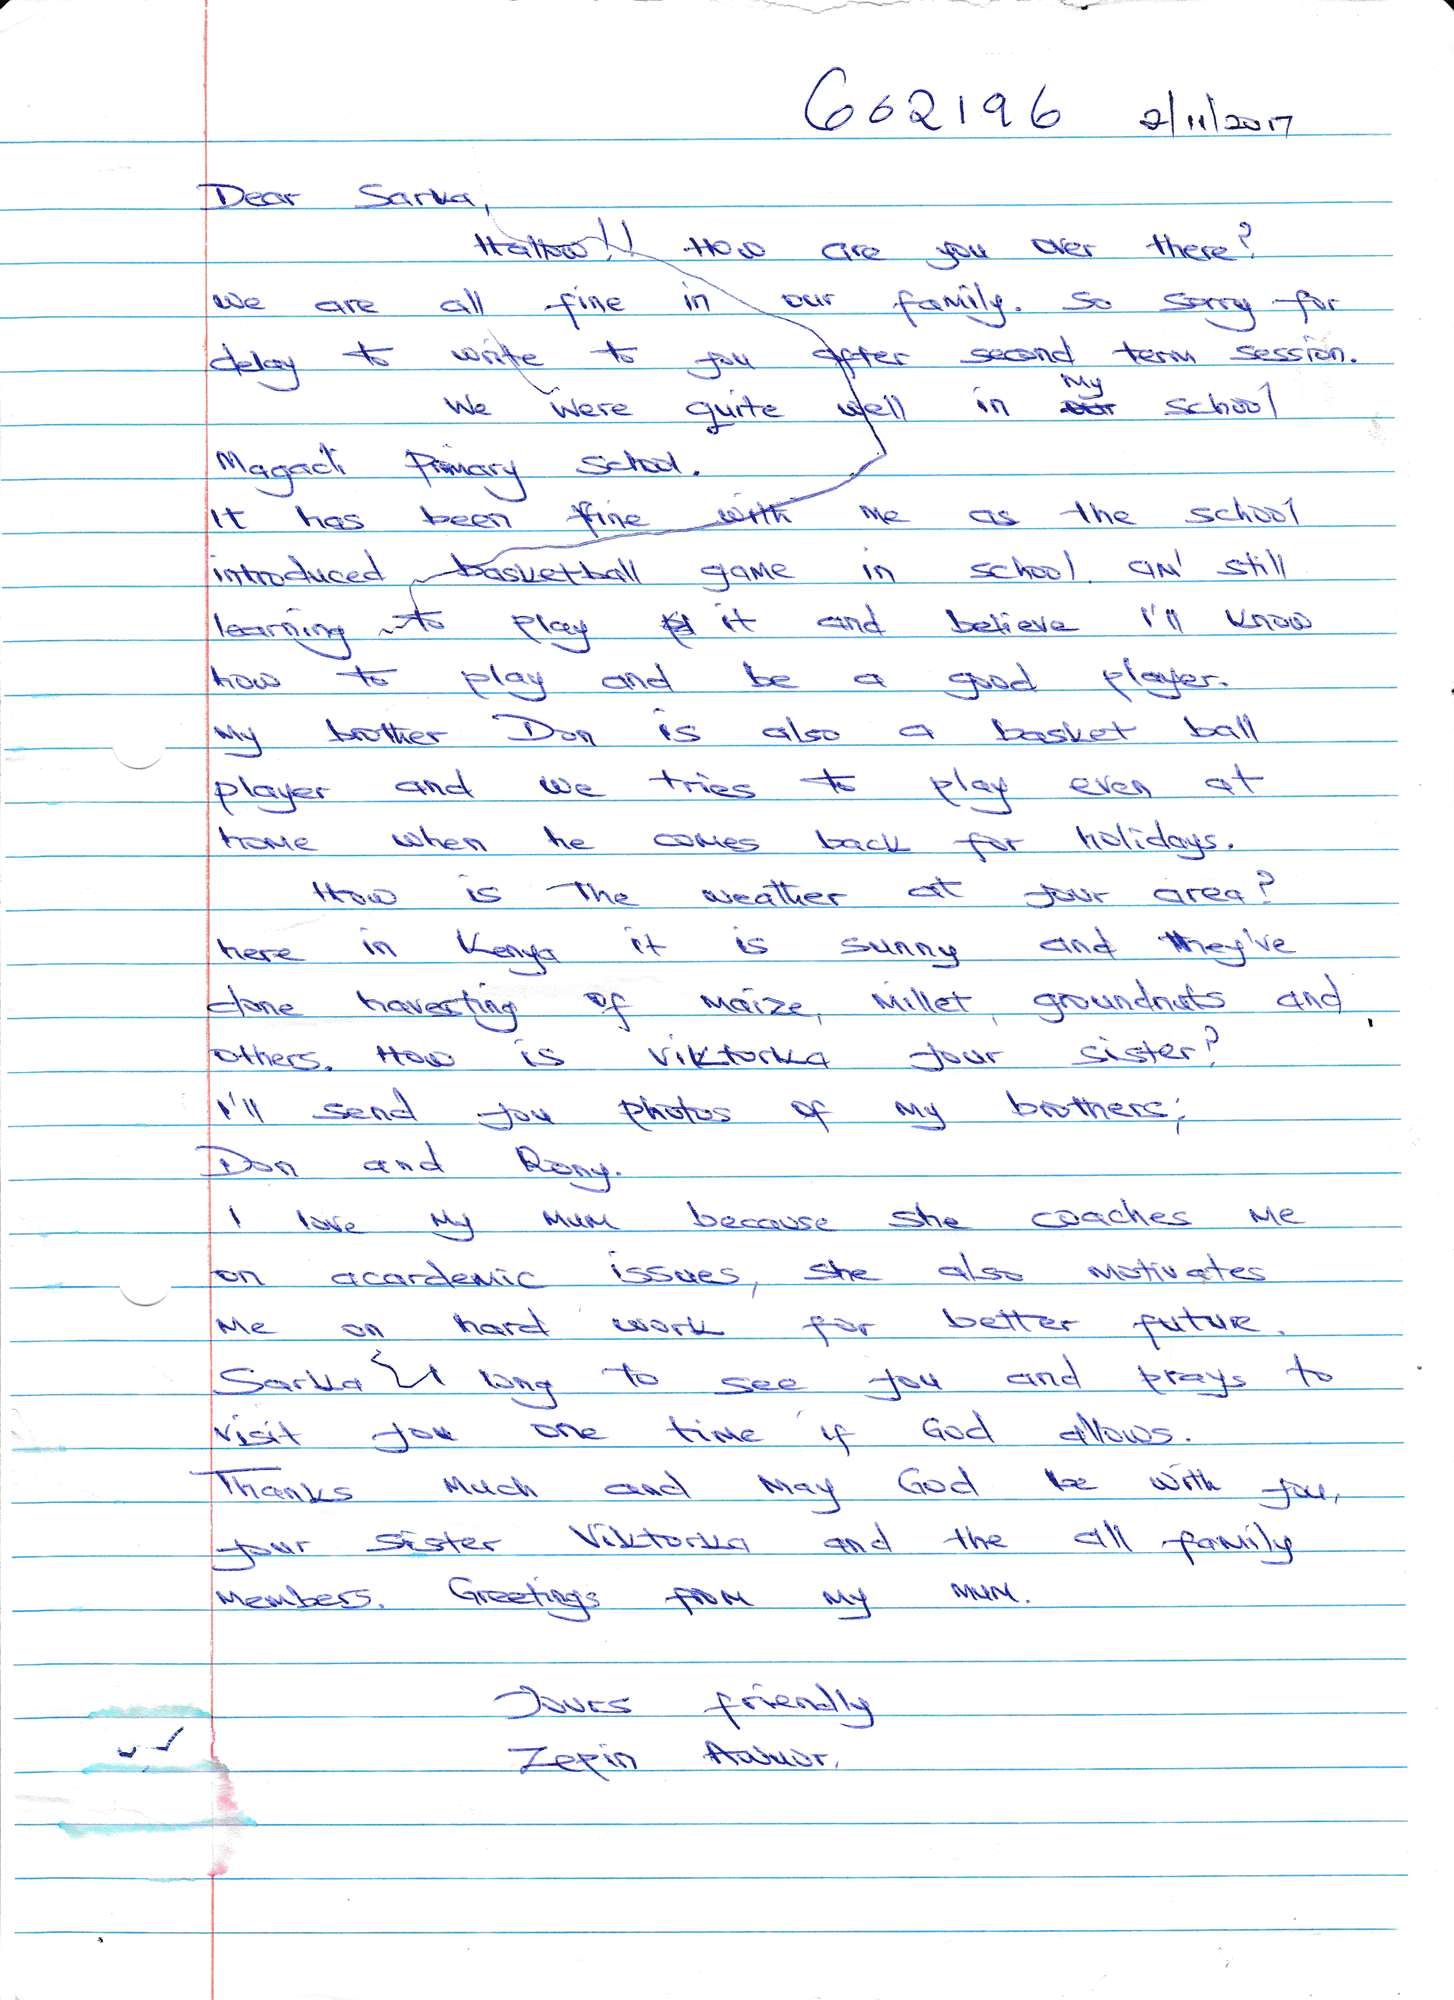 602196 2/11/2017
Dear Sarka,
Hallow!! How are you over there?
We are all fine in our family. So sorry for
delay to write to you after second term session.
We were quite well in my school
Magadi Primary school.
It has been fine with me as the school
introduced basketball game in school. am still
learning to play it and believe I'll know
how to play and be a good player.
My brother Don is also a basket ball
player and we tries to play even at
home when he comes back for holidays.
How is the weather at your area?
here in Kenya it is sunny and they've
done havesting of maize, millet, groundnuts and
others. How is Viktorka your sister?
I'll send you photos of my brothers;
Don and Rony.
I love my mum because she coaches me
on acardemic issues, she also motivates
me on hard work for better future.
Sarka I long to see you and prays to
visit you one time if God allows.
Thanks much and may God be with you,
your sister Viktorka and the all family
members. Greetings from my mum.
Yours friendly
Zepin